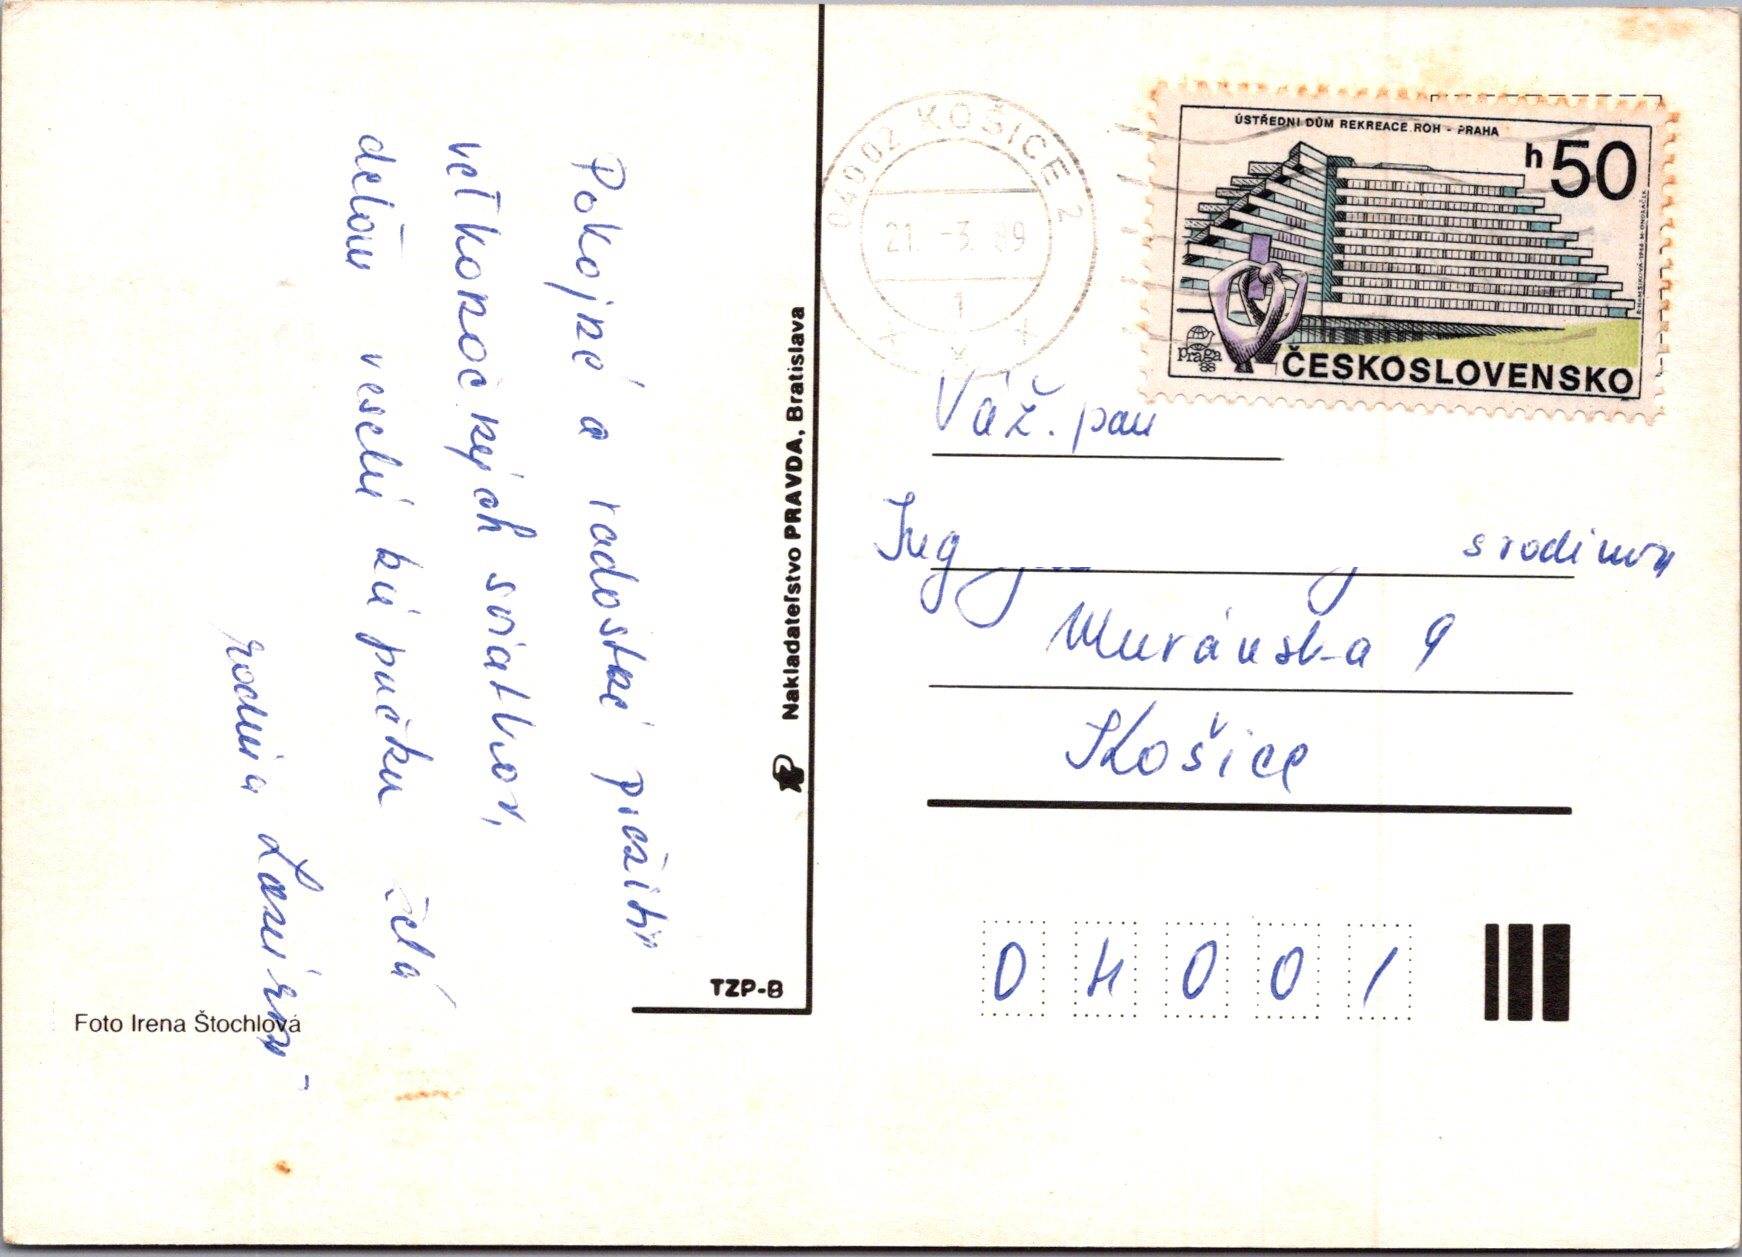 Pokojné a radostné prežitie
veľkonočných sviatkov,
deťom veselú kúpačku želá
rodina
Foto Irena Štochlová
Nakladateľstvo PRAVDA, Bratislava
TZP-B
04002 KOŠICE 2
21.-3. 89
1
ÚSTŘEDNÍ DŮM REKREACE ROH - PRAHA
h50
praga
88
ČESKOSLOVENSKO
Váž. pan
Ing s rodinou
Muránska 9
Košice
04001